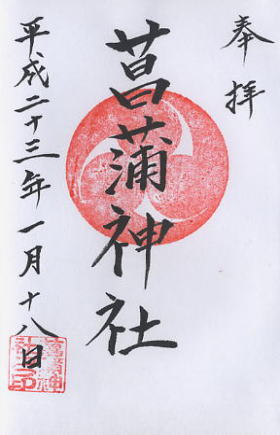 奉拝
菖蒲神社
平成二十三年一月十八日
菖蒲神
社之印